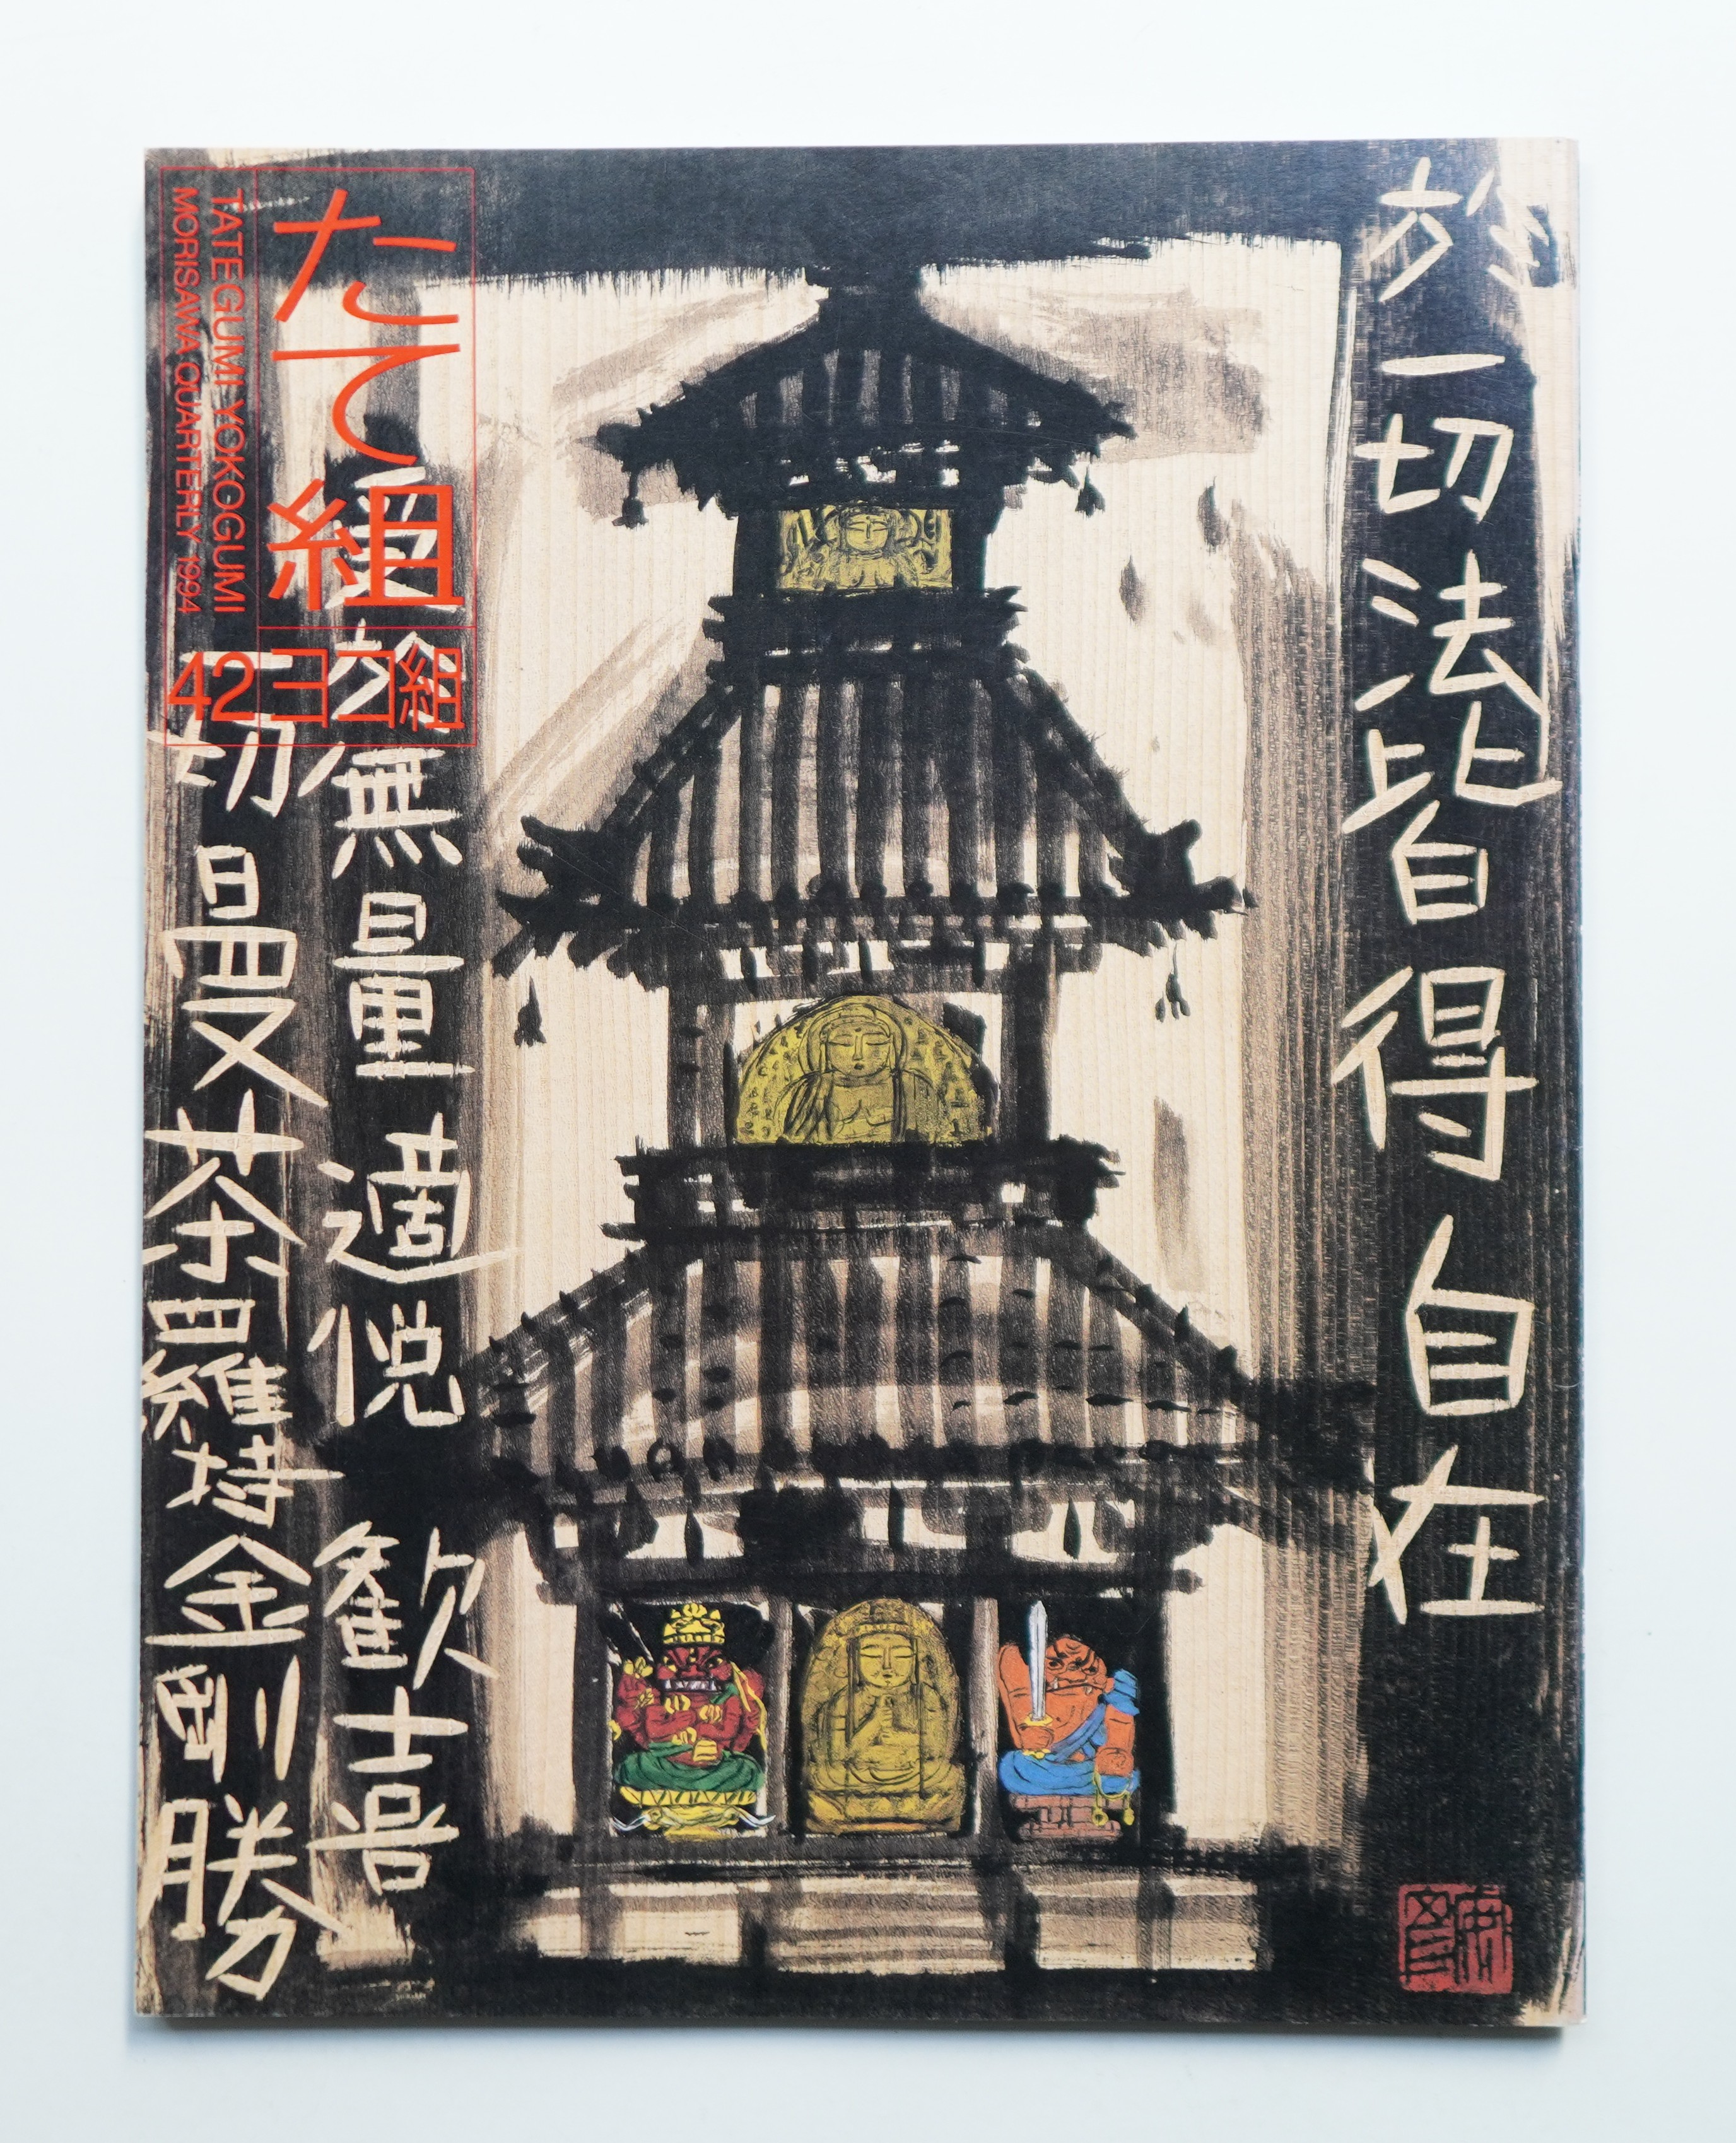 たて組
ヨコ組
TATEGUMI YOKOGUMI
MORISAWA QUARTERLY 1994
42
於一切法皆得自在
受於無量適悦歓喜
一切曼荼羅持金剛勝